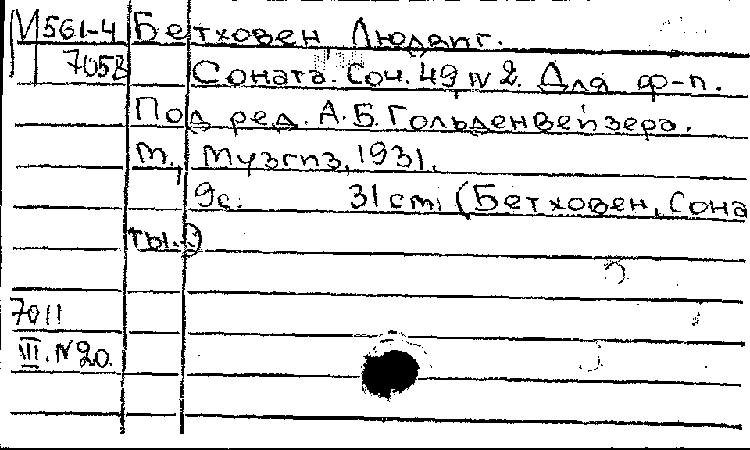 М561-4 Бетховен Людвиг.
705В Соната. Соч. 49 N 2. Для ф-п.
Под ред. А.Б. Гольденвейзера.
М., Музгиз, 1931.
9с. 31 cm, (Бетховен, Сона
ты.)
7011
III. N 20.